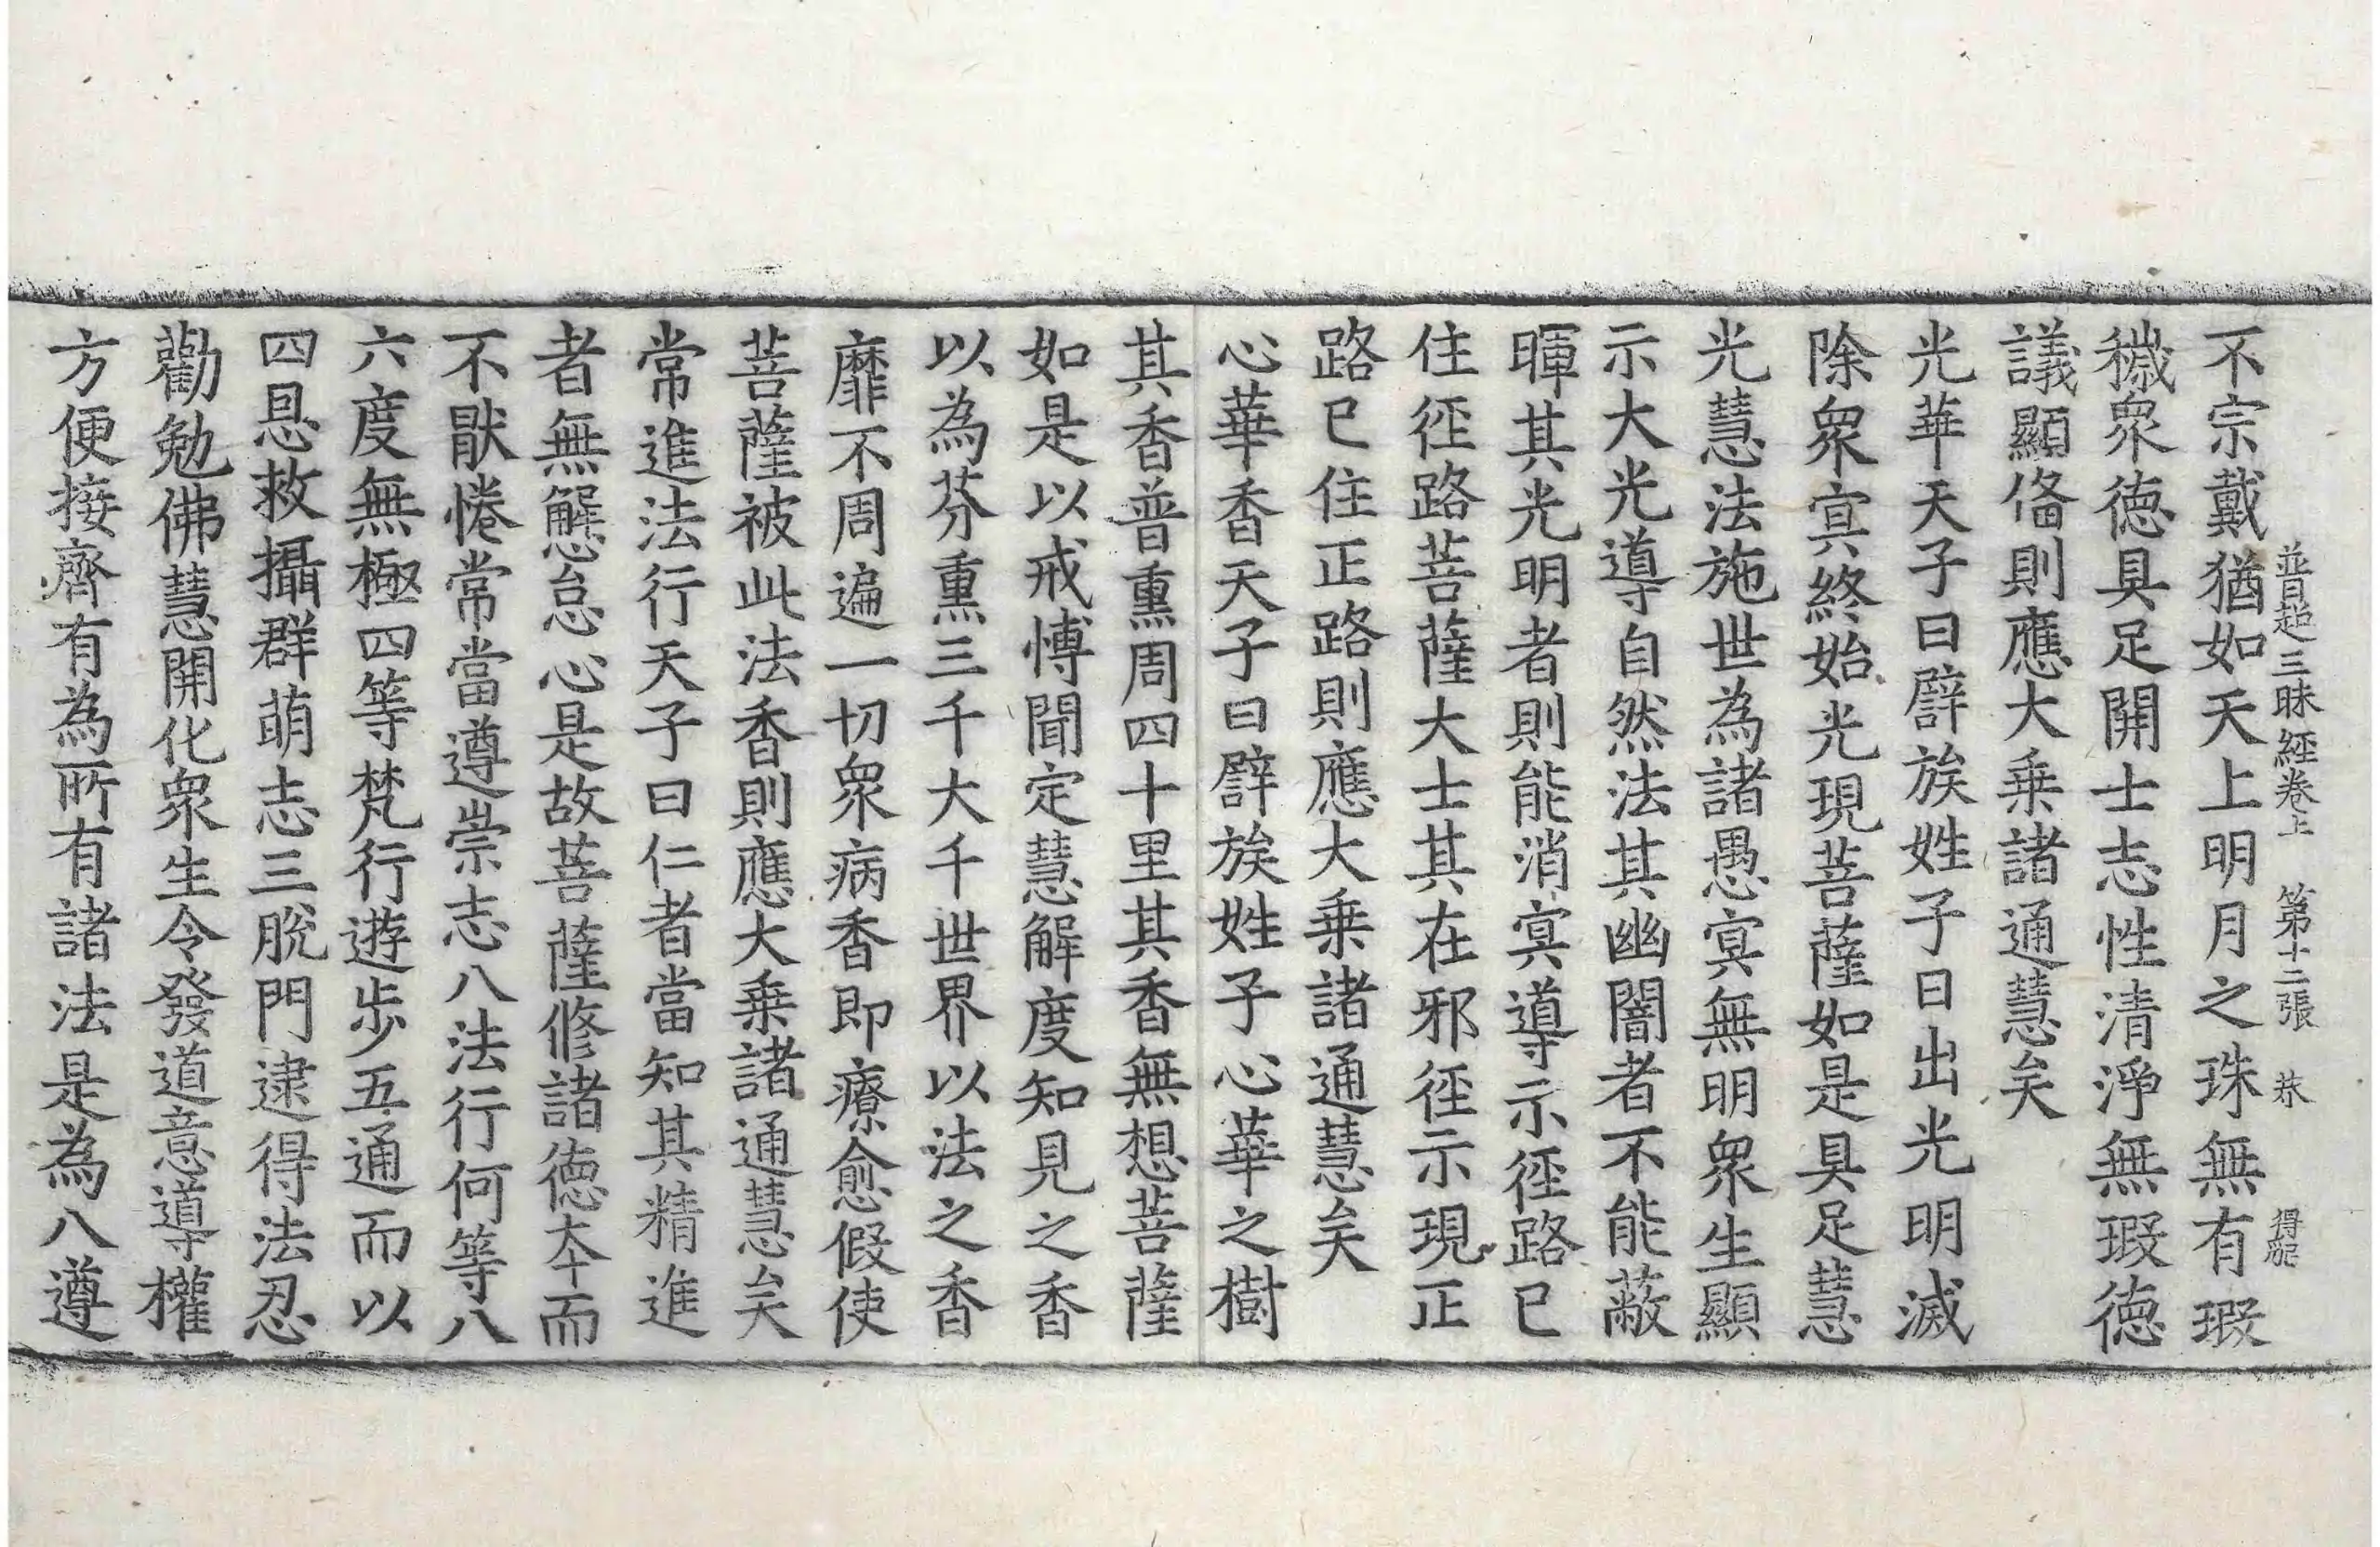 普超三昧經卷上 第十二張 㳟 得龍
不宗戴猶如天上明月之珠無有瑕
穢衆德具足開士志性清淨無瑕德
議顯俻則應大乗諸通慧矣
光華天子曰譬族姓子日出光明滅
除衆㝠終始光現菩薩如是具足慧
光慧法施世為諸愚㝠無明衆生顯
示大光導自然法其幽闇者不能蔽
暉其光明者則能消㝠導示徑路已
住徑路菩薩大士其在邪徑示現正
路已住正路則應大乗諸通慧矣
心華香天子曰譬族姓子心華之樹
其香普熏周四十里其香無想菩薩
如是以戒愽聞定慧解度知見之香
以為芬熏三千大千世界以法之香
靡不周遍一切衆病香即療愈假使
菩薩被此法香則應大乗諸通慧矣
常進法行天子曰仁者當知其精進
者無懈怠心是故菩薩修諸德夲而
不猒惓常當遵崇志八法行何等八
六度無極四等梵行遊步五通而以
四恩救攝群萌志三脫門逮得法忍
勸勉佛慧開化衆生令發道意導權
方便接齊有為所有諸法是為八遵